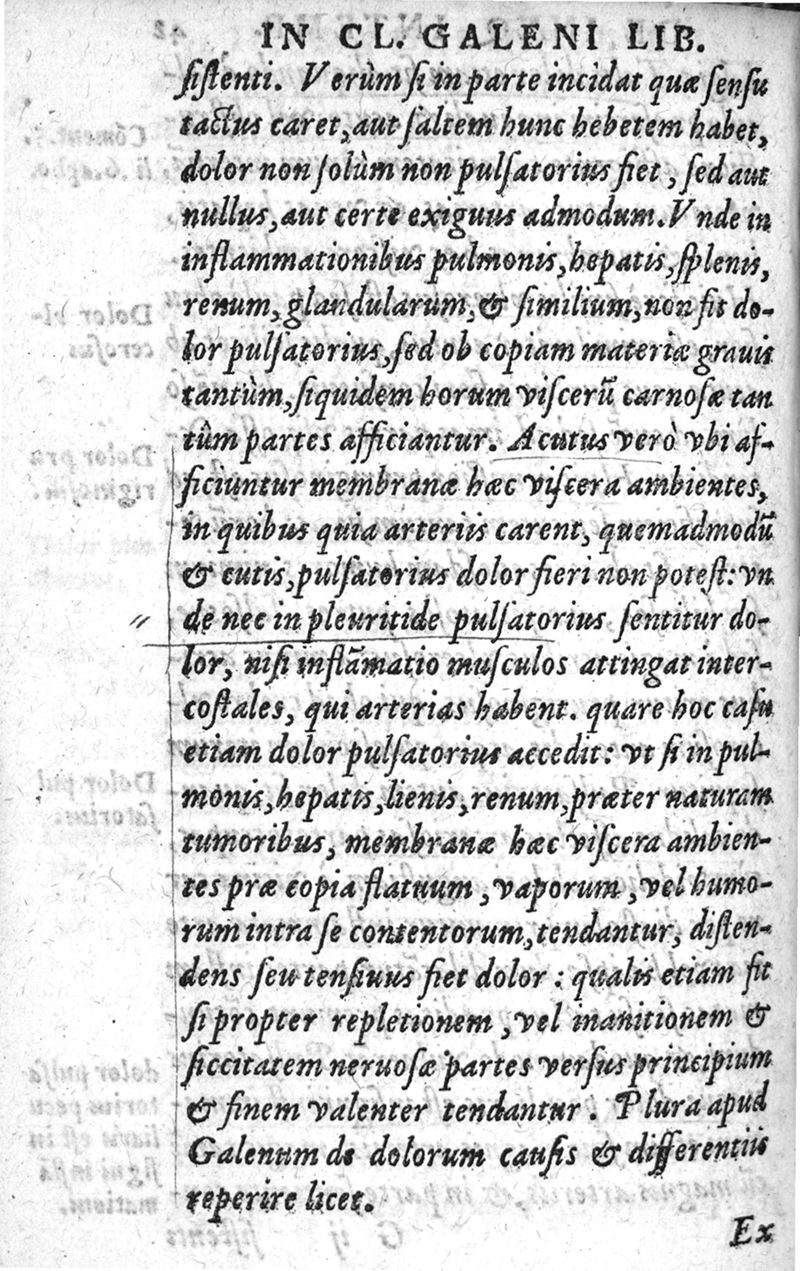 IN CL. GALENI LIB.
ſiſtenti. Verùm ſi in parte incidat quæ ſenſu
tactus caret, aut ſaltem hunc hebetem habet,
dolor non ſolùm non pulſatorius fiet, ſed aut
nullus, aut certe exiguus admodum. Vnde in
inflammationibus pulmonis, hepatis, ſplenis,
renum, glandularum, & ſimilium, non fit do-
lor pulſatorius, ſed ob copiam materiæ grauis
tantùm, ſiquidem horum viſcerũ carnoſæ tan
tùm partes afficiantur. Acutus verò vbi af-
ficiuntur membranæ hæc viſcera ambientes,
in quibus quia arteriis carent, quemadmodũ
& cutis, pulſatorius dolor fieri non poteſt: vn
de nec in pleuritide pulſatorius ſentitur do-
lor, niſi inflāmatio muſculos attingat inter-
coſtales, qui arterias habent. quare hoc caſu
etiam dolor pulſatorius accedit: vt ſi in pul-
monis, hepatis, lienis, renum, præter naturam
tumoribus, membranæ hæc viſcera ambien-
tes præ copia flatuum, vaporum, vel humo-
rum intra ſe contentorum, tendantur, diſten-
dens ſeu tenſiuus fiet dolor: qualis etiam fit
ſi propter repletionem, vel inanitionem &
ſiccitatem neruoſæ partes verſus principium
& finem valenter tendantur. Plura apud
Galenum de dolorum cauſis & differentiis
reperire licet.
Ex